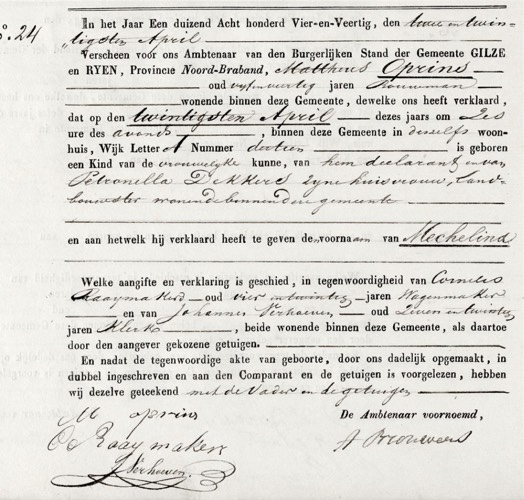 N.º 24
In het Jaar Een duizend Acht honderd Vier-en-Veertig, den twee en twin-
tigsten April
Verscheen voór ons Ambtenaar van den Burgerlijken Stand der Gemeente GILZE
en RYEN, Provincie Noord-Braband, Mattheus Oprins
oud vijfenveertig jaren Bouwman
wonende binnen deze Gemeente, dewelke ons heeft verklaard,
dat op den twintigsten April dezes jaars om Zes
ure des avonds, binnen deze Gemeente in deszelfs woon-
huis, Wijk Letter A Nummer dertien is geboren
een Kind van de vrouwelyke kunne, van hem declarant en van
Petronella Dekkers zyne huisvrouw, Land-
bouwster wonende binnen deze gemeente
en aan hetwelk hij verklaard heeft te geven den voornaam van Mechelina
Welke aangifte en verklaring is geschied, in tegenwoordigheid van Cornelis
Raaymakers oud vier en twintig jaren Wagenmaker
en van Johannes Verhoeven oud Zeven en twintig
jaren Klerk, beide wonende binnen deze Gemeente, als daartoe
door den aangever gekozene getuigen.
En nadat de tegenwoordige akte van geboorte, door ons dadelijk opgemaakt, in
dubbel ingeschreven en aan den Comparant en de getuigen is voorgelezen, hebben
wij dezelve geteekend met de Vader en de getuigen
M oprins
De Ambtenaar voornoemd,
C Raaymakers
A Brouwers
J Verhoeven